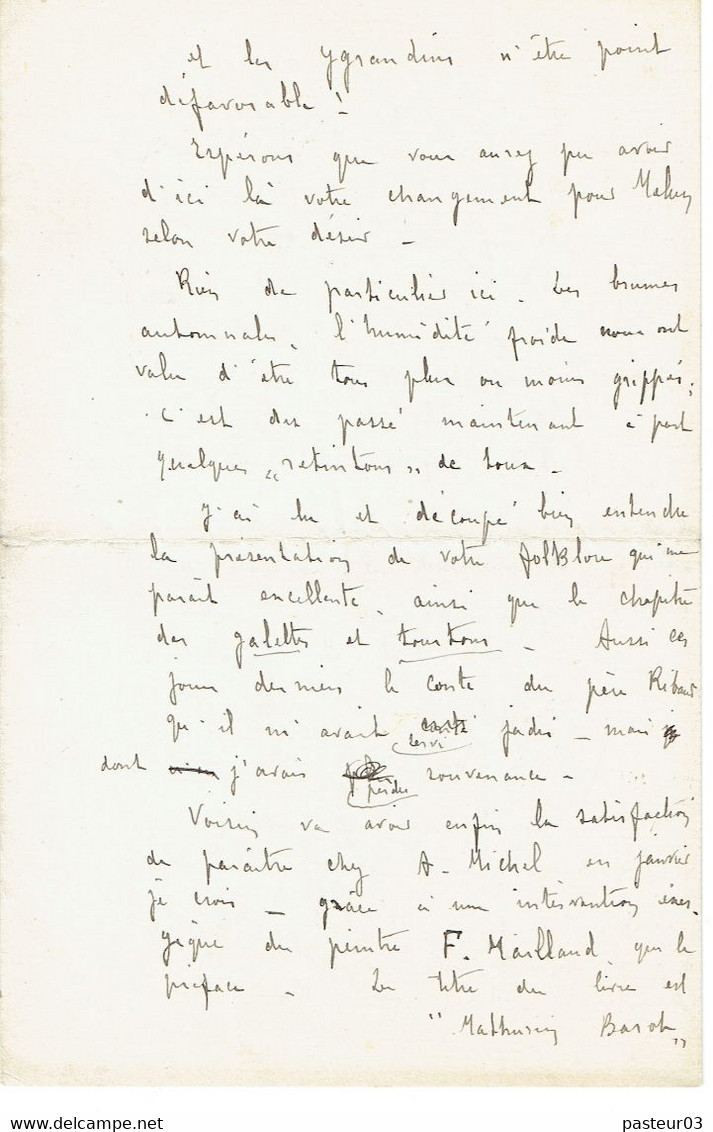 et les Ygrandins n'être point
défavorable !
Espérons que vous aurez pu avoir
d'ici là votre changement pour
selon votre désir –
Rien de particulier ici. Les brumes
automnales, l'humidité froide nous ont
valu d'être tous plus ou moins grippés.
C'est du passé maintenant à part
quelques „ retintons „ de toux –
J'ai lu et découpé bien entendu
la présentation de votre folklore qui me
paraît excellente, ainsi que le chapitre
des galettes et tourtons – Aussi ces
jours derniers le conte du père Ribaud
qu'il m'avait servi jadis – mais
dont j'avais perdu souvenance –
Voisin va avoir enfin la satisfaction
de paraître chez A. Michel en janvier
je crois – grâce à une intervention éner-
gique du peintre F. Mailland, qui le
préface – Le titre du livre est
" Mathurin Barot „
pasteur03